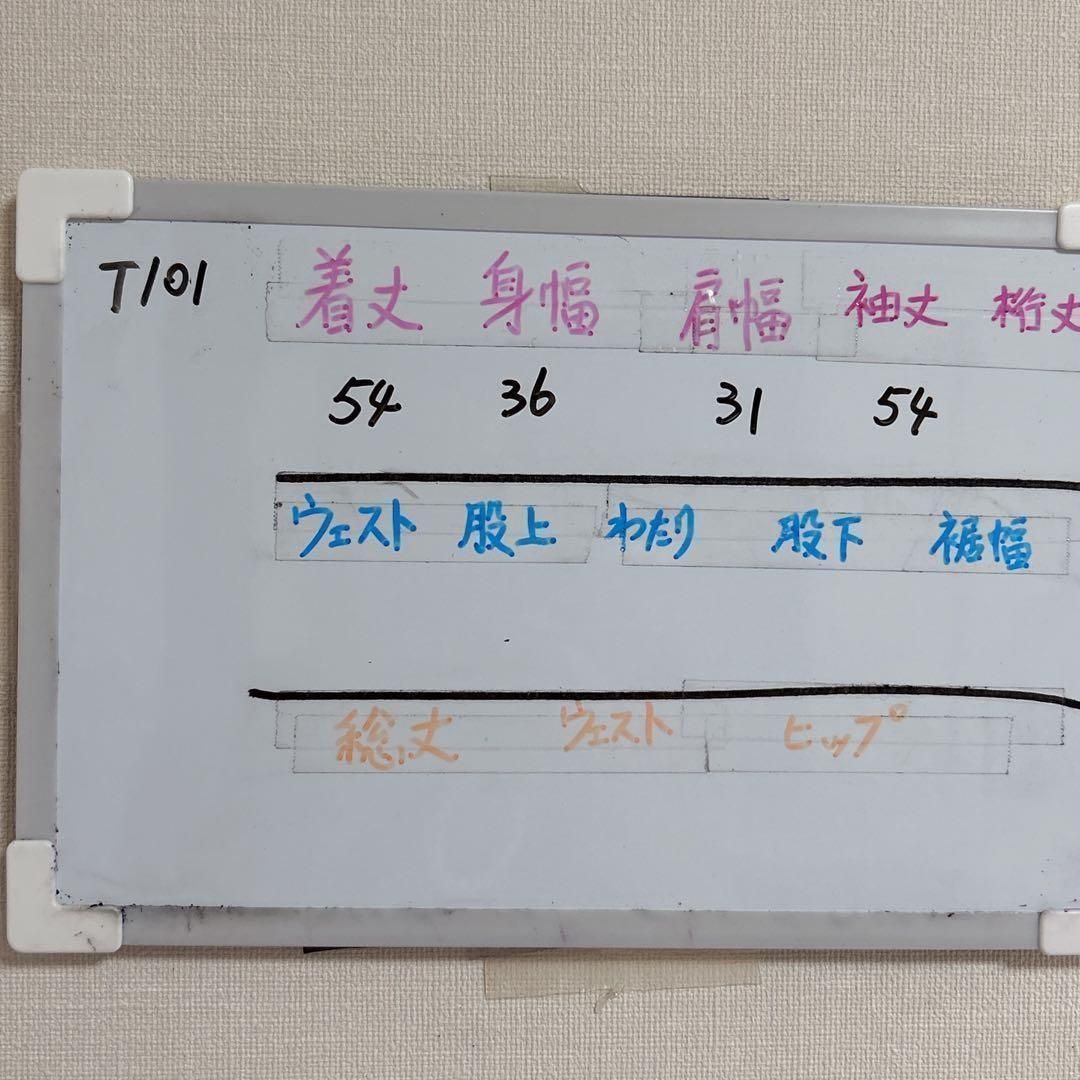 T101 着丈 身幅 肩幅 袖丈 裄丈
54 36 31 54
ウェスト 股上 わたり 股下 裾幅
総丈 ウェスト ヒップ